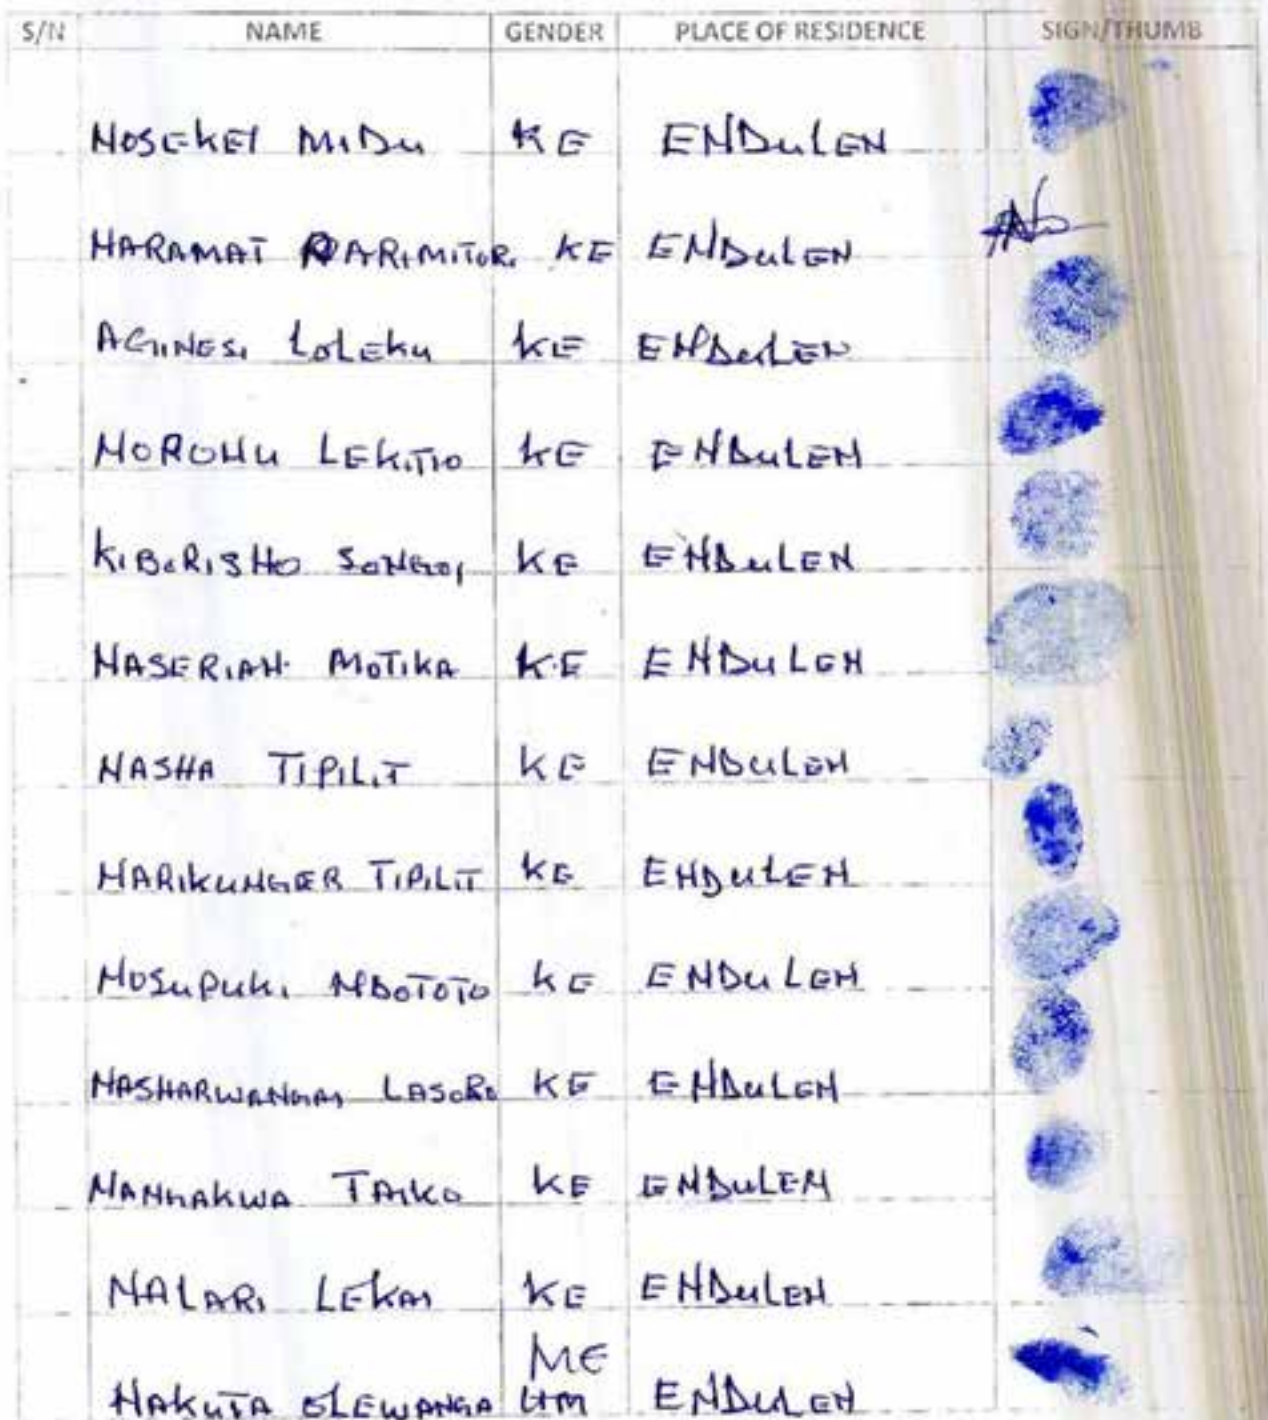 S/N NAME GENDER PLACE OF RESIDENCE SIGN/THUMB
NOSEKEI MIDU KE ENDULEN
NARAMAT PARIMITORI KE ENDULEN
AGINESI LOLEKU KE ENDULEN
NORONU LEKITIO KE ENDULEN
KIBORISHO SONGOI KE ENDULEN
NASERIAN MOTIKA KE ENDULEN
NASHA TIPILIT KE ENDULEN
NARIKUNGER TIPILIT KE ENDULEN
NOSUPUKI NDOTOTO KE ENDULEN
NASHARWANGAI LASORO KE ENDULEN
NANGAKWA TAIKO KE ENDULEN
NALARI LEKAI KE ENDULEN
ME
NAKUTA OLEWANGA ENDULEN